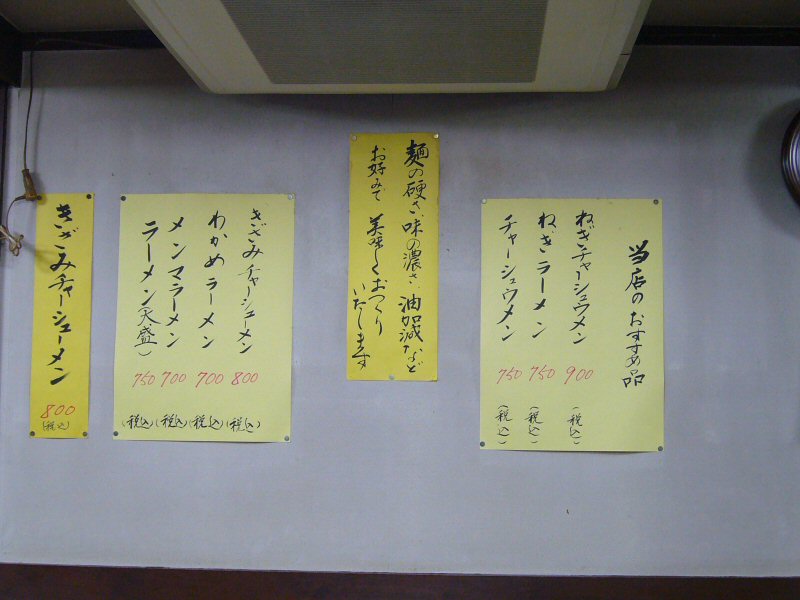 当店のおすすめ品
ねぎチャーシュウメン 900 (税込)
ねぎラーメン 750 (税込)
チャーシュウメン 750 (税込)
麺の硬さ 味の濃さ 油加減など
お好みで 美味しくおつくり
いたします
きざみチャーシューメン 800 (税込)
わかめラーメン 700 (税込)
メンマラーメン 700 (税込)
ラーメン(大盛) 750 (税込)
きざみチャーシューメン
800
(税込)